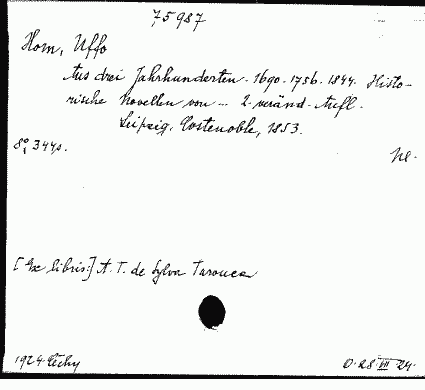 75987
Horn, Uffo
Aus drei Jahrhunderten. 1690. 1756. 1844. Histo-
rische Novellen von ... 2. veränd. Aufl.
Leipzig, Costenoble, 1853.
8°, 344 s.
Ne.
[Ex libris:] A. T. de Sylva Tarouca
1924 Čechy
D. 28 VII 24.